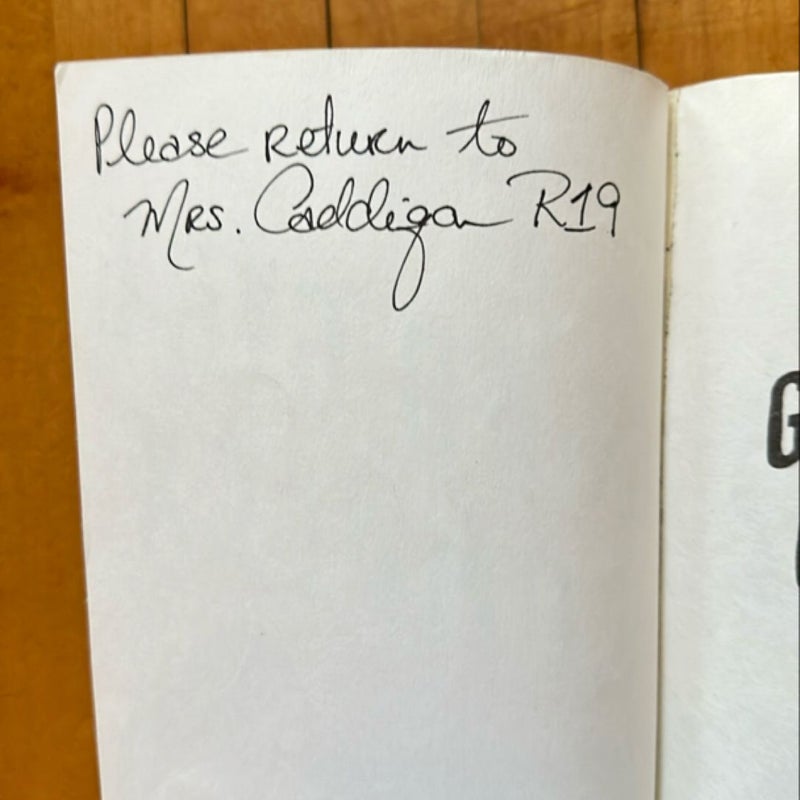 Please return to
Mrs. Caddigan R19
G